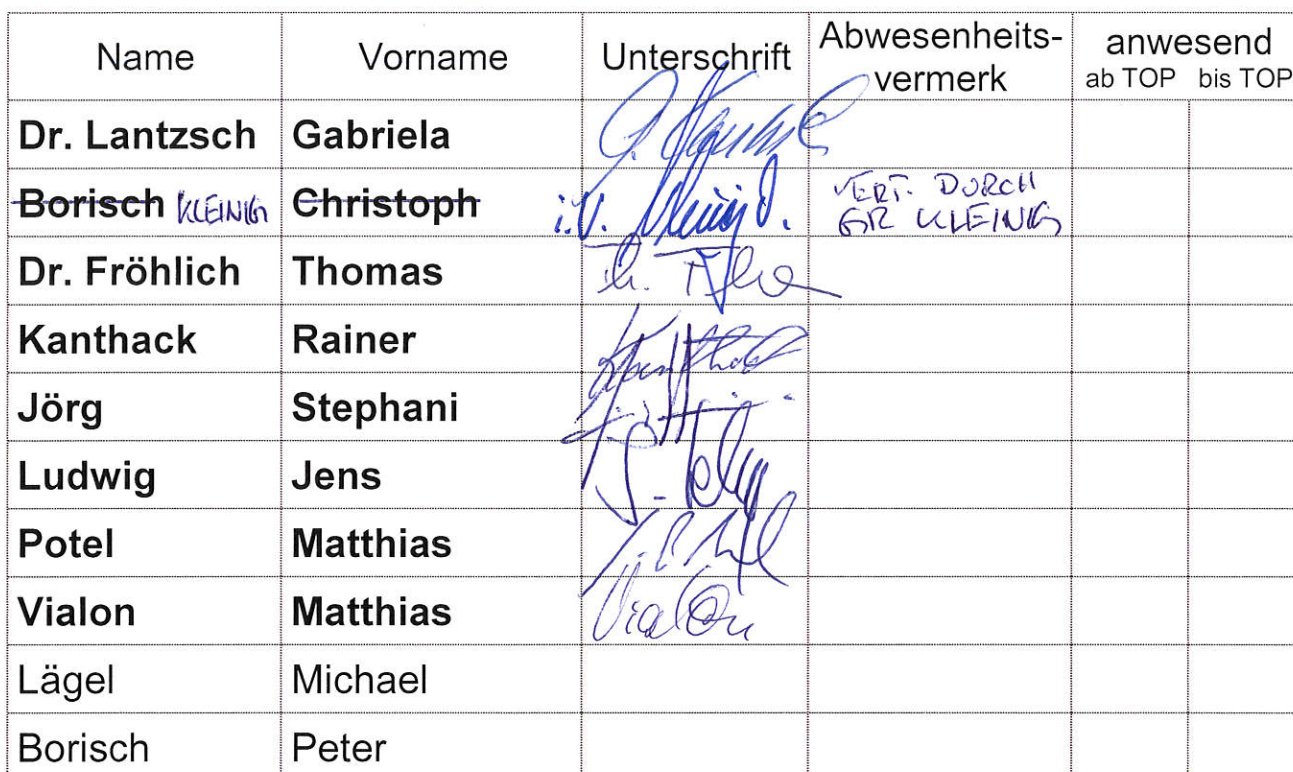 Name Vorname Unterschrift Abwesenheits-vermerk anwesend
ab TOP bis TOP
Dr. Lantzsch Gabriela
Borisch KLEINIG Christoph i.V. VERT. DURCH
GR KLEINIG
Dr. Fröhlich Thomas
Kanthack Rainer
Jörg Stephani
Ludwig Jens
Potel Matthias
Vialon Matthias Vialon
Lägel Michael
Borisch Peter